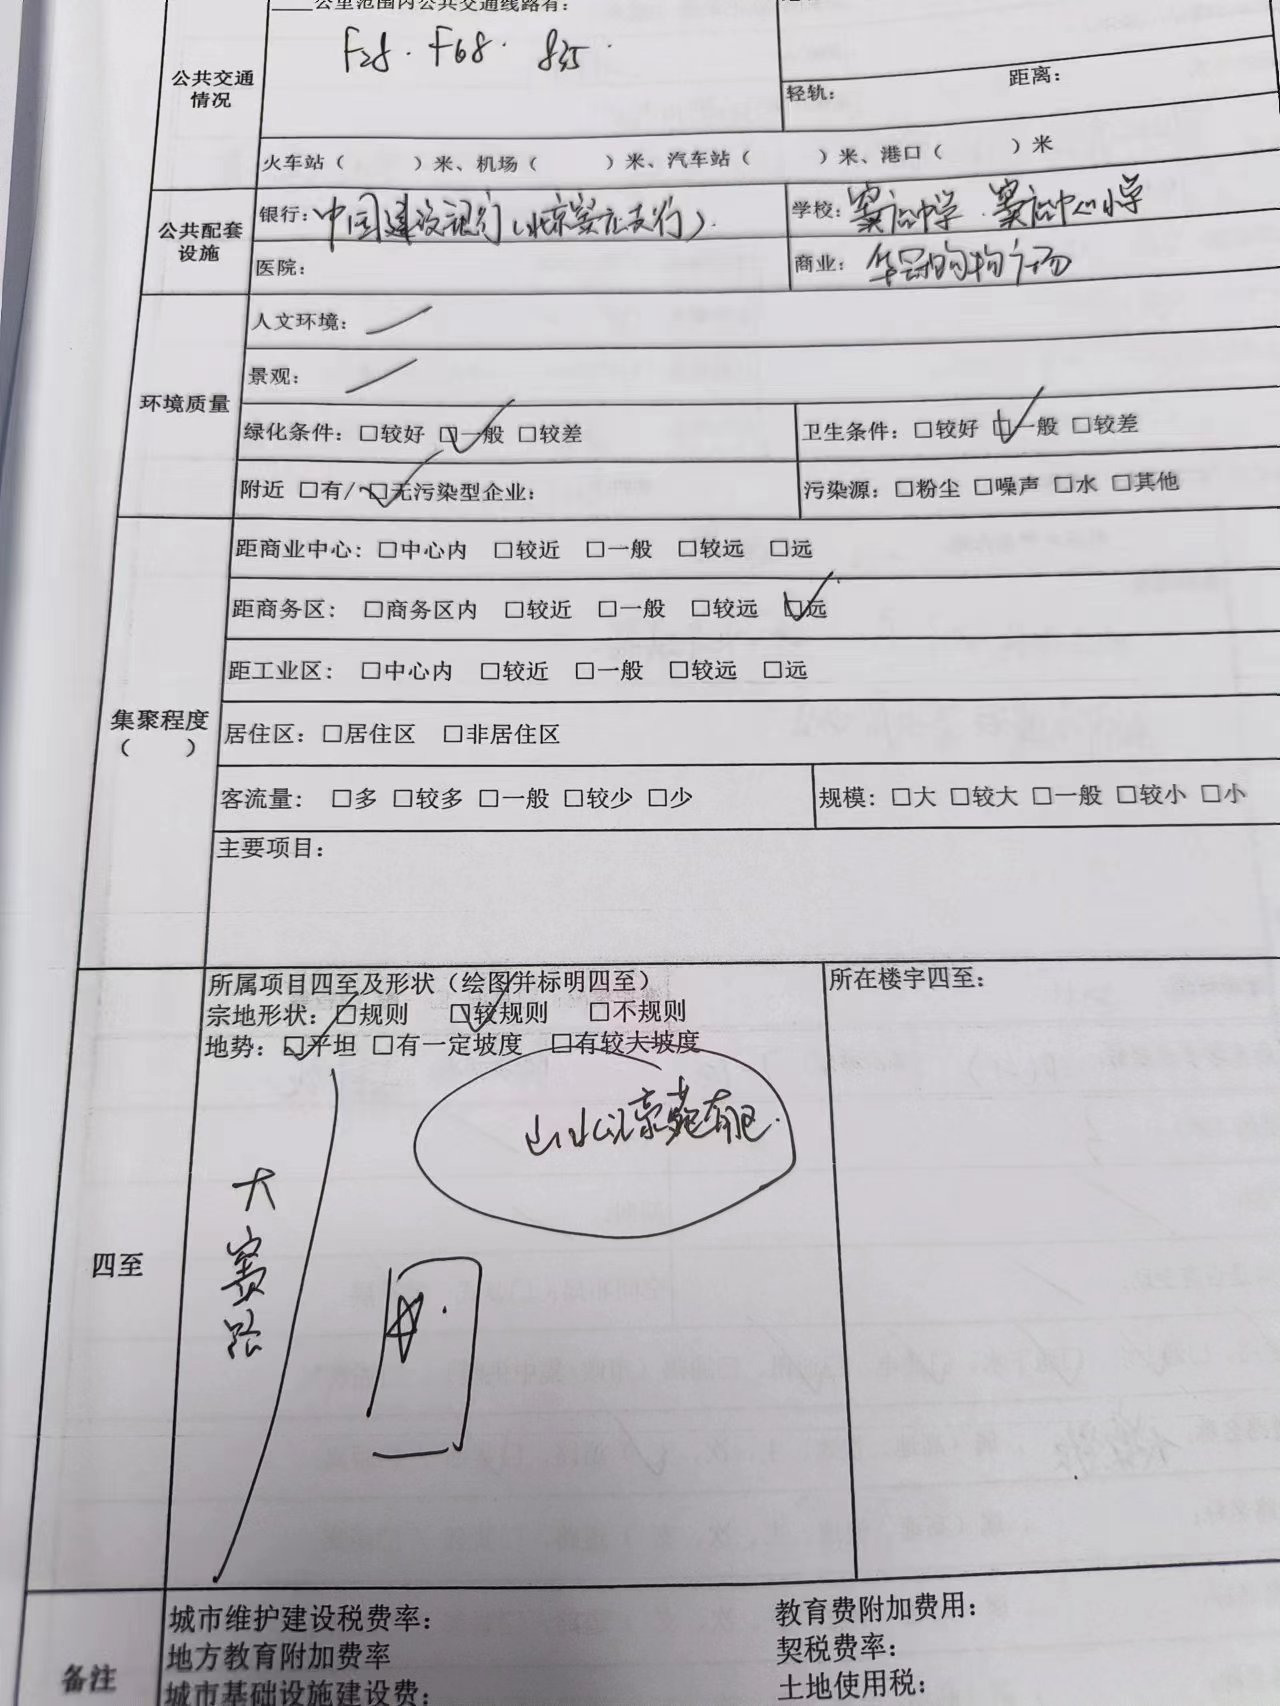 公里范围内公共交通线路有：
F28. F68. 835.
公共交通情况
轻轨： 距离：
火车站（ ）米、机场（ ）米、汽车站（ ）米、港口（ ）米
公共配套设施
银行：中国建设银行（北京窦店支行）.
学校：窦店中学. 窦店中心小学
医院：
商业：华冠购物广场
环境质量
人文环境：
景观：
绿化条件：□较好 □一般 □较差
卫生条件：□较好 □一般 □较差
附近 □有/□无污染型企业：
污染源：□粉尘 □噪声 □水 □其他
集聚程度
（ ）
距商业中心：□中心内 □较近 □一般 □较远 □远
距商务区：□商务区内 □较近 □一般 □较远 □远
距工业区：□中心内 □较近 □一般 □较远 □远
居住区：□居住区 □非居住区
客流量：□多 □较多 □一般 □较少 □少
规模：□大 □较大 □一般 □较小 □小
主要项目：
四至
所属项目四至及形状（绘图并标明四至）
宗地形状：□规则 □较规则 □不规则
地势：□平坦 □有一定坡度 □有较大坡度
所在楼宇四至：
山水
大窦路
备注
城市维护建设税费率：
教育费附加费用：
地方教育附加费率
契税费率：
城市基础设施建设费：
土地使用税：